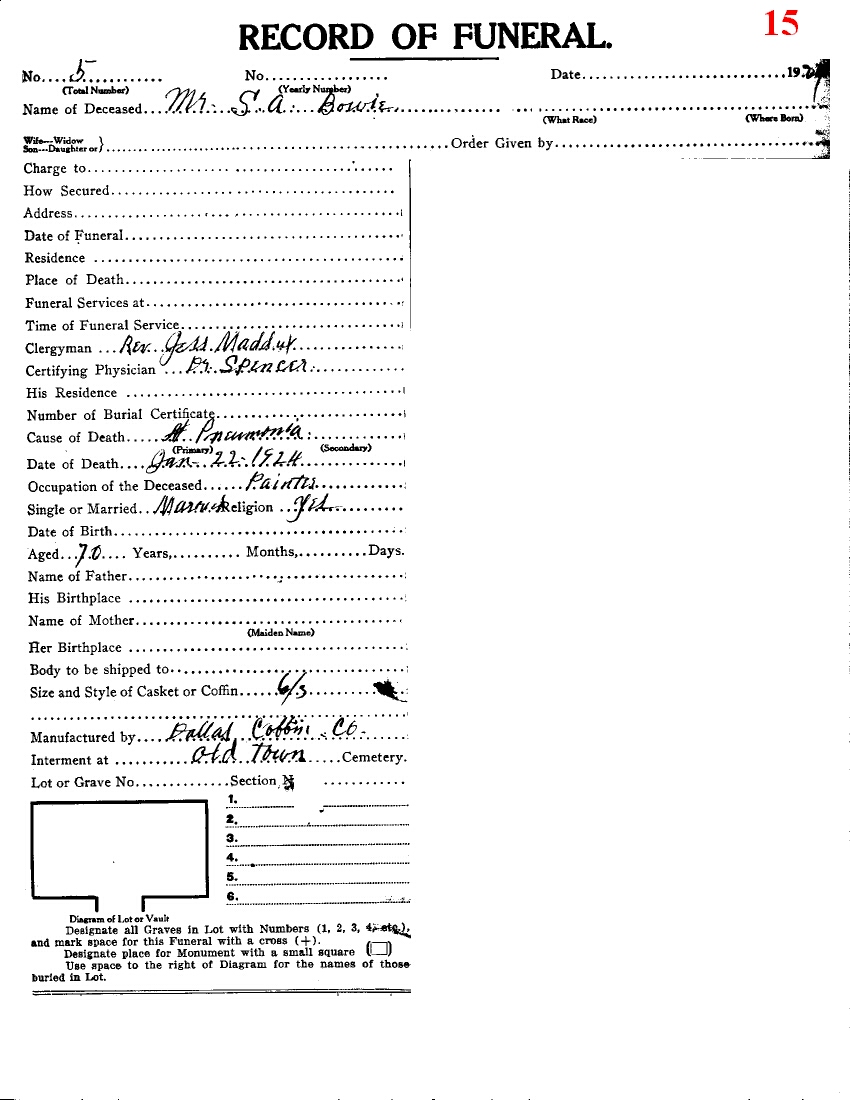 15
RECORD OF FUNERAL.
No....5............ No.................. Date..............................19
(Total Number) (Yearly Number)
Name of Deceased....Mr. S. A. Bowie..............................
(What Race) (Where Born)
Wife---Widow
Son---Daughter or}..................................................Order Given by........................................
Charge to..............................................
How Secured...........................................
Address.................................................
Date of Funeral.........................................
Residence ..............................................
Place of Death..........................................
Funeral Services at.......................................
Time of Funeral Service..................................
Clergyman ...Rev. Jess Maddux................
Certifying Physician ...Dr. Spencer.............
His Residence .........................................
Number of Burial Certificate............................
Cause of Death.....Pneumonia..............
(Primary) (Secondary)
Date of Death....Jan. 22. 1924................
Occupation of the Deceased......Painter.............
Single or Married.. Religion ..Yes..........
Date of Birth...........................................
Aged...70.... Years,.......... Months,..........Days.
Name of Father.........................................
His Birthplace .........................................
Name of Mother........................................
(Maiden Name)
Her Birthplace .........................................
Body to be shipped to...................................
Size and Style of Casket or Coffin.....6/3..............
........................................................
Manufactured by....Dallas Coffin Co.......
Interment at ...........Old Town.....Cemetery.
Lot or Grave No..............Section ............
1.
2.
3.
4.
5.
6.
Diagram of Lot or Vault
Designate all Graves in Lot with Numbers (1, 2, 3, 4, etc.),
and mark space for this Funeral with a cross (+).
Designate place for Monument with a small square ( )
Use space to the right of Diagram for the names of those
buried in Lot.